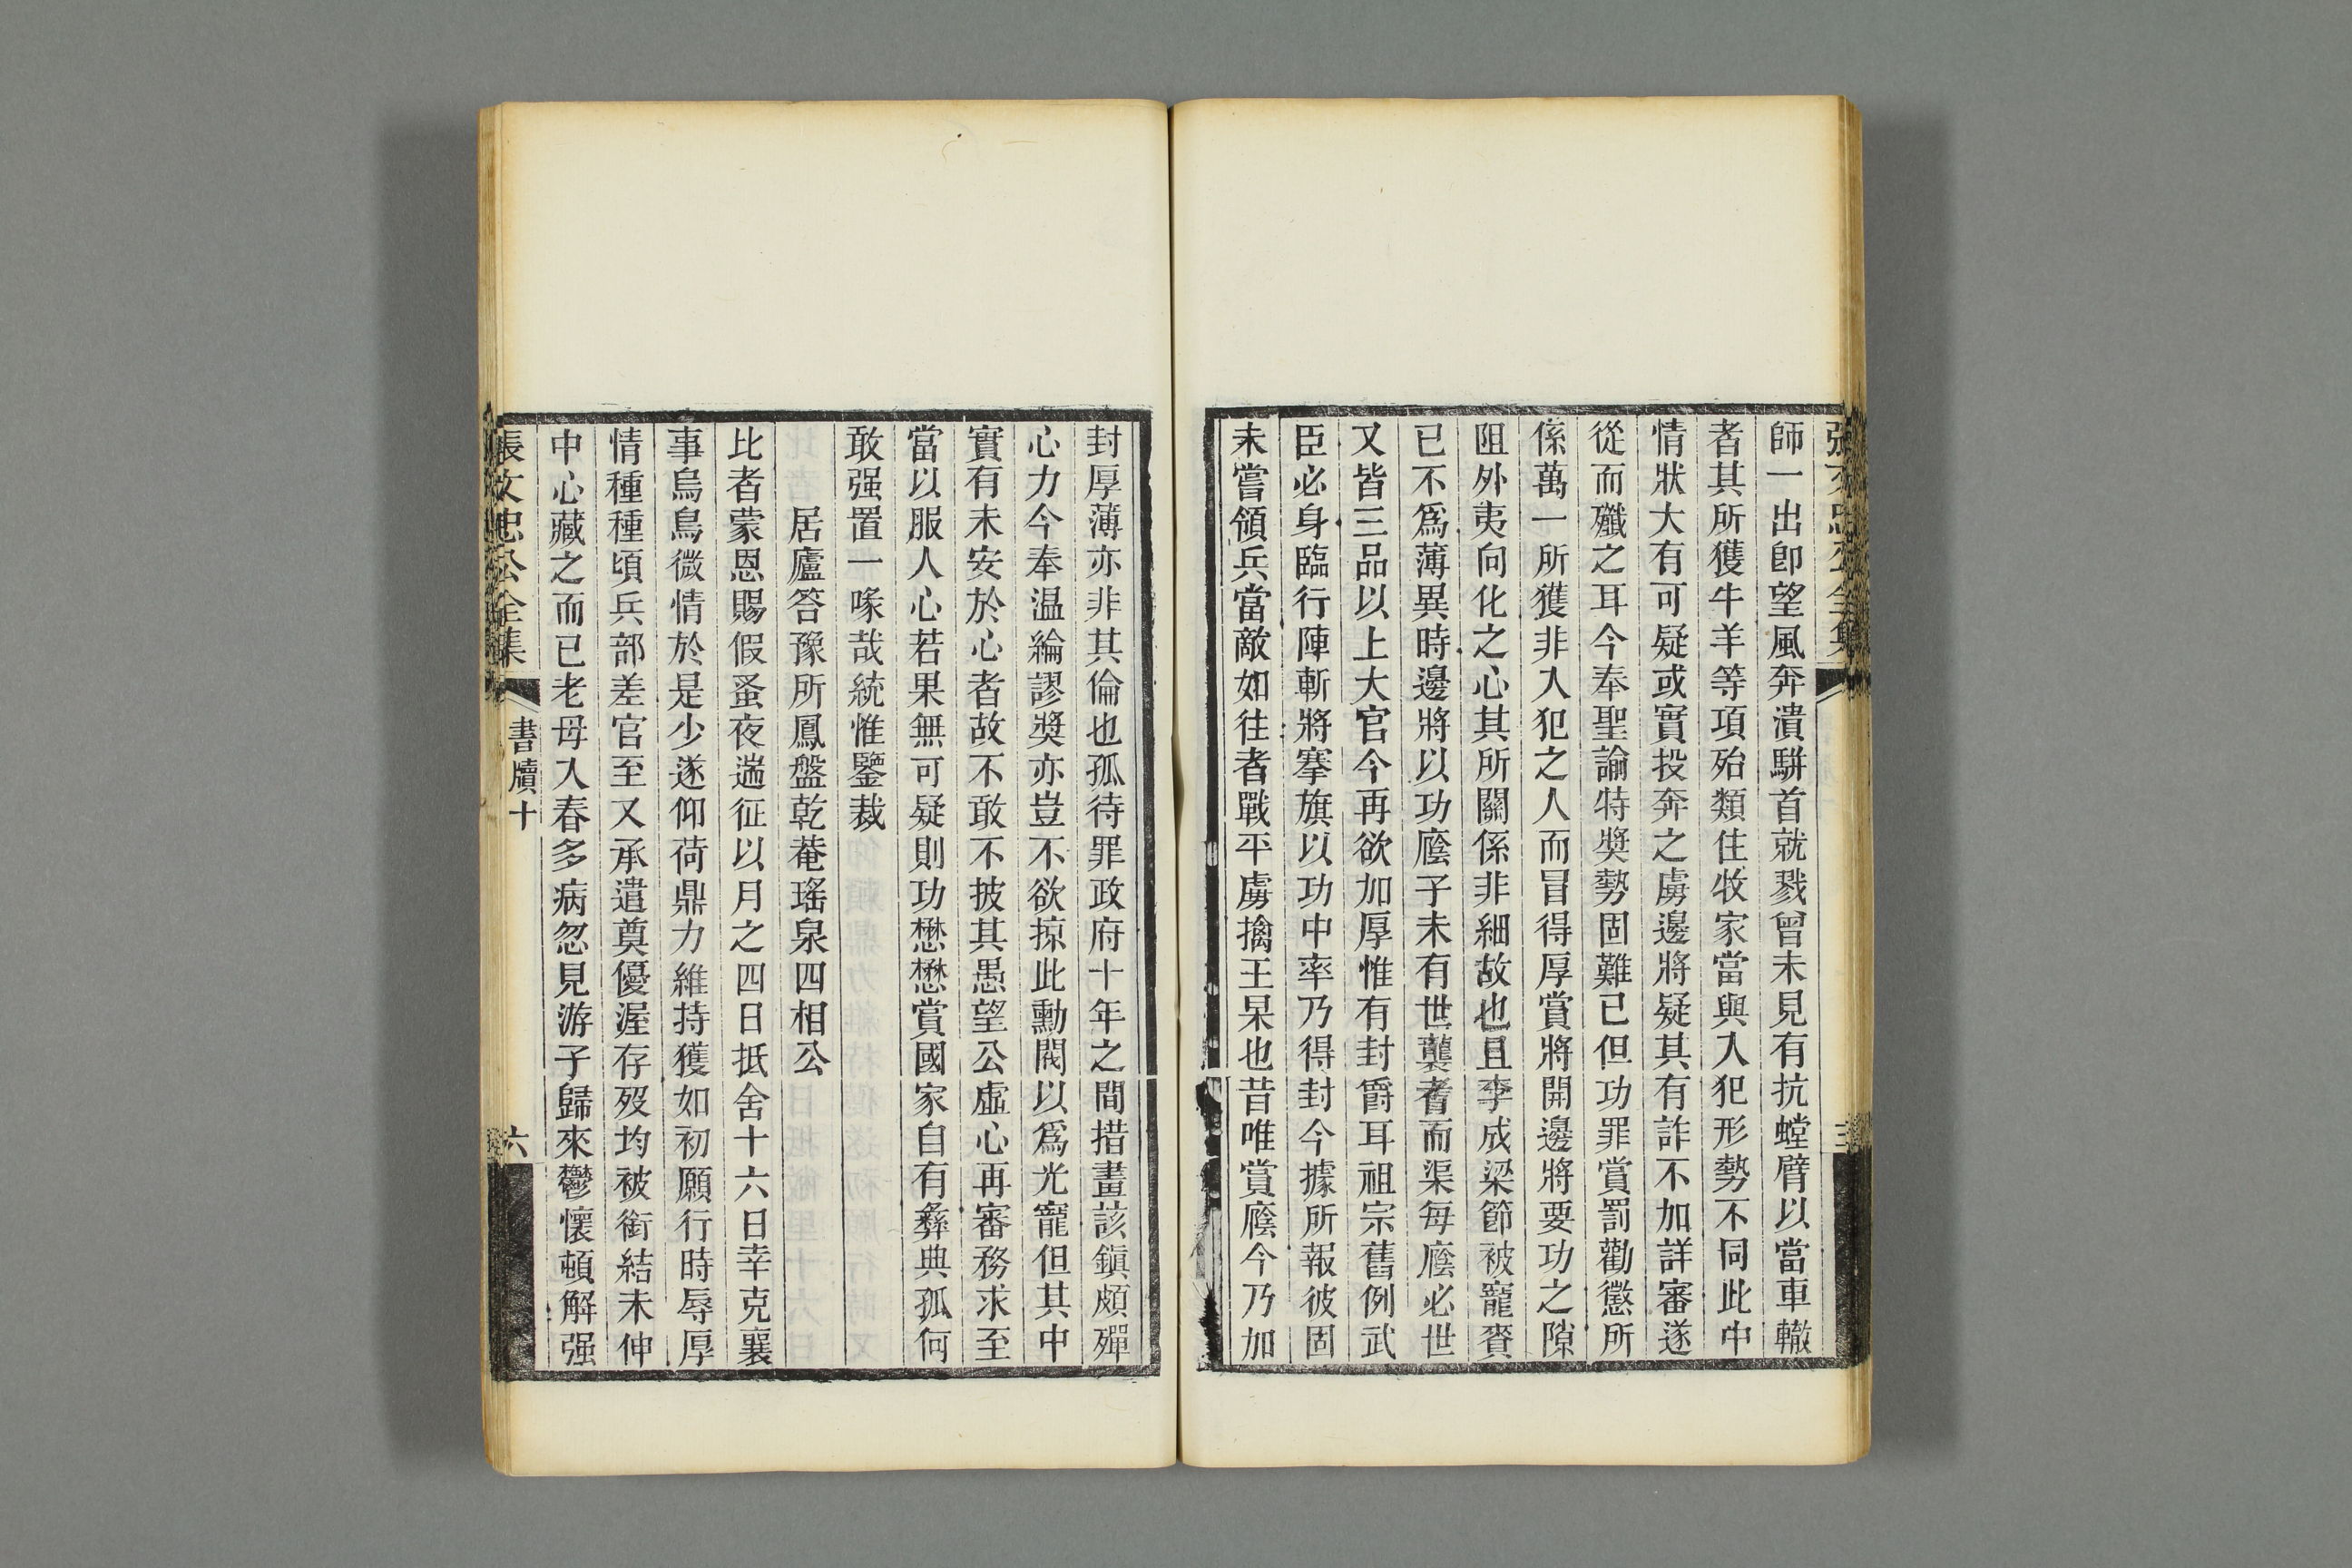 師一出卽望風奔潰駢首就戮曾未見有抗螳臂以當車轍
者其所獲牛羊等項殆類住牧家當與入犯形勢不同此中
情狀大有可疑或實投奔之虜邊將疑其有詐不加詳審遂
從而殲之耳今奉聖諭特奬勢固難已但功罪賞罰勸懲所
係萬一所獲非入犯之人而冒得厚賞將開邊將要功之隙
阻外夷向化之心其所關係非細故也且李成梁節被寵賚
已不爲薄異時邊將以功廕子未有世襲者而渠每廕必世
又皆三品以上大官今再欲加厚惟有封爵耳祖宗舊例武
臣必身臨行陣斬將搴旗以功中率乃得封今據所報彼固
未嘗領兵當敵如往者戰平虜擒王杲也昔唯賞廕今乃加
封厚薄亦非其倫也孤待罪政府十年之間措畫該鎭頗殫
心力今奉温綸謬奬亦豈不欲掠此勳閥以爲光寵但其中
實有未安於心者故不敢不披其愚望公虛心再審務求至
當以服人心若果無可疑則功懋懋賞國家自有彝典孤何
敢强置一喙哉統惟鑒裁
居廬答豫所鳳盤乾菴瑤泉四相公
比者蒙恩賜假蚤夜遄征以月之四日抵舍十六日幸克襄
事烏鳥微情於是少遂仰荷鼎力維持獲如初願行時辱厚
情種種頃兵部差官至又承遣奠優渥存歿均被銜結未伸
中心藏之而已老母入春多病忽見游子歸來鬱懷頓解强
張文忠公全集
書牘十
六